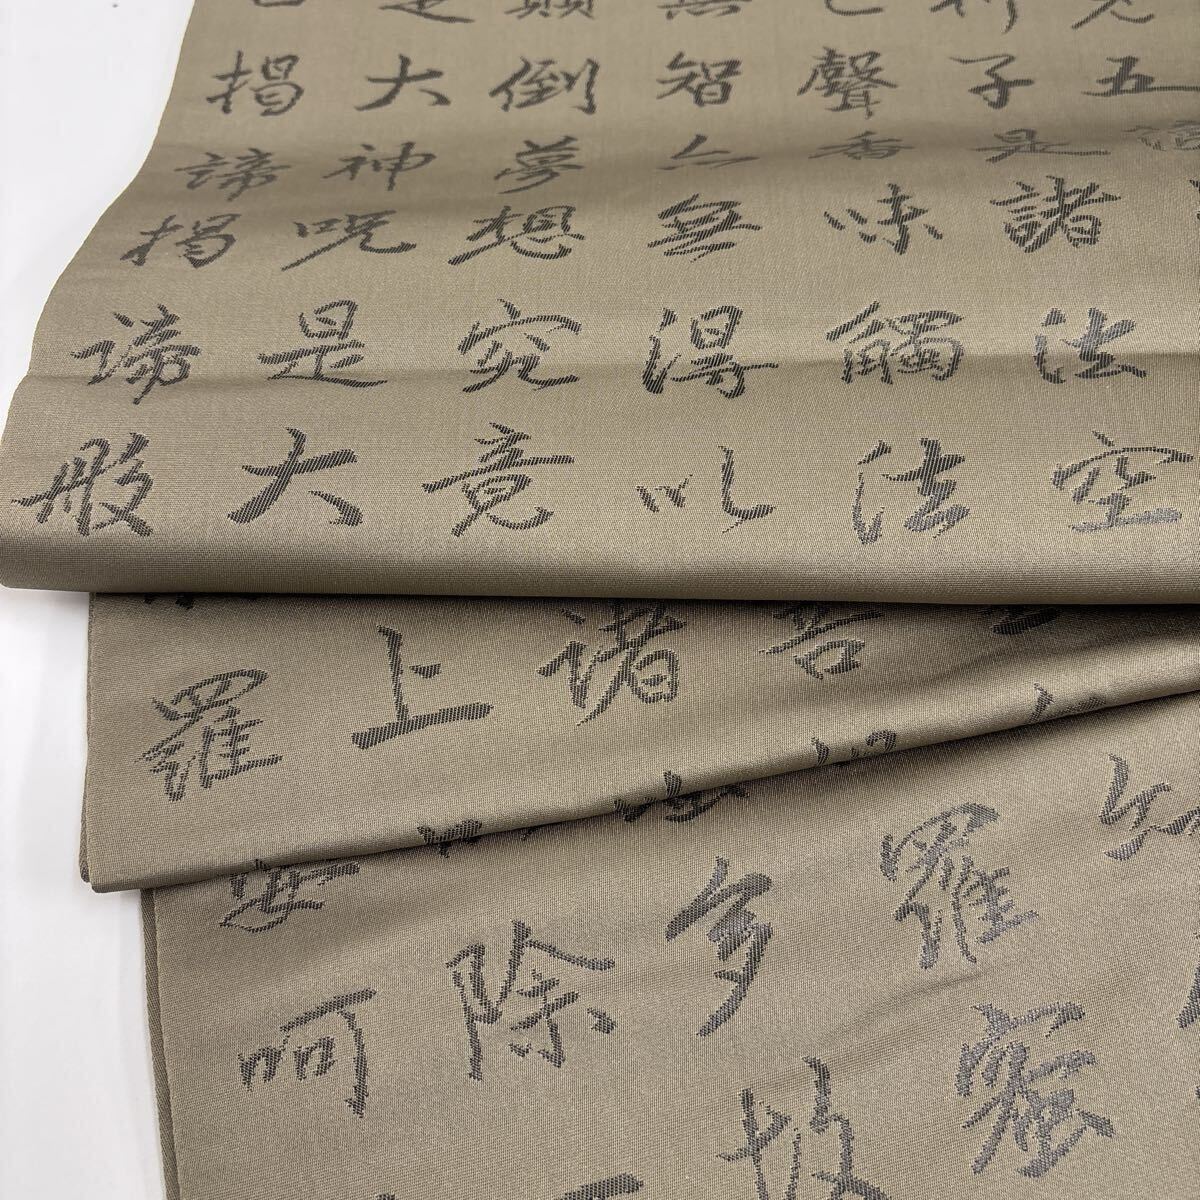 五
利子是諸法空
聲香味觸法
無智亦無得以
顛倒夢想究竟
是大神咒是大
揭諦揭諦般
菩
諸
上
羅
羅蜜
多故
除
呵